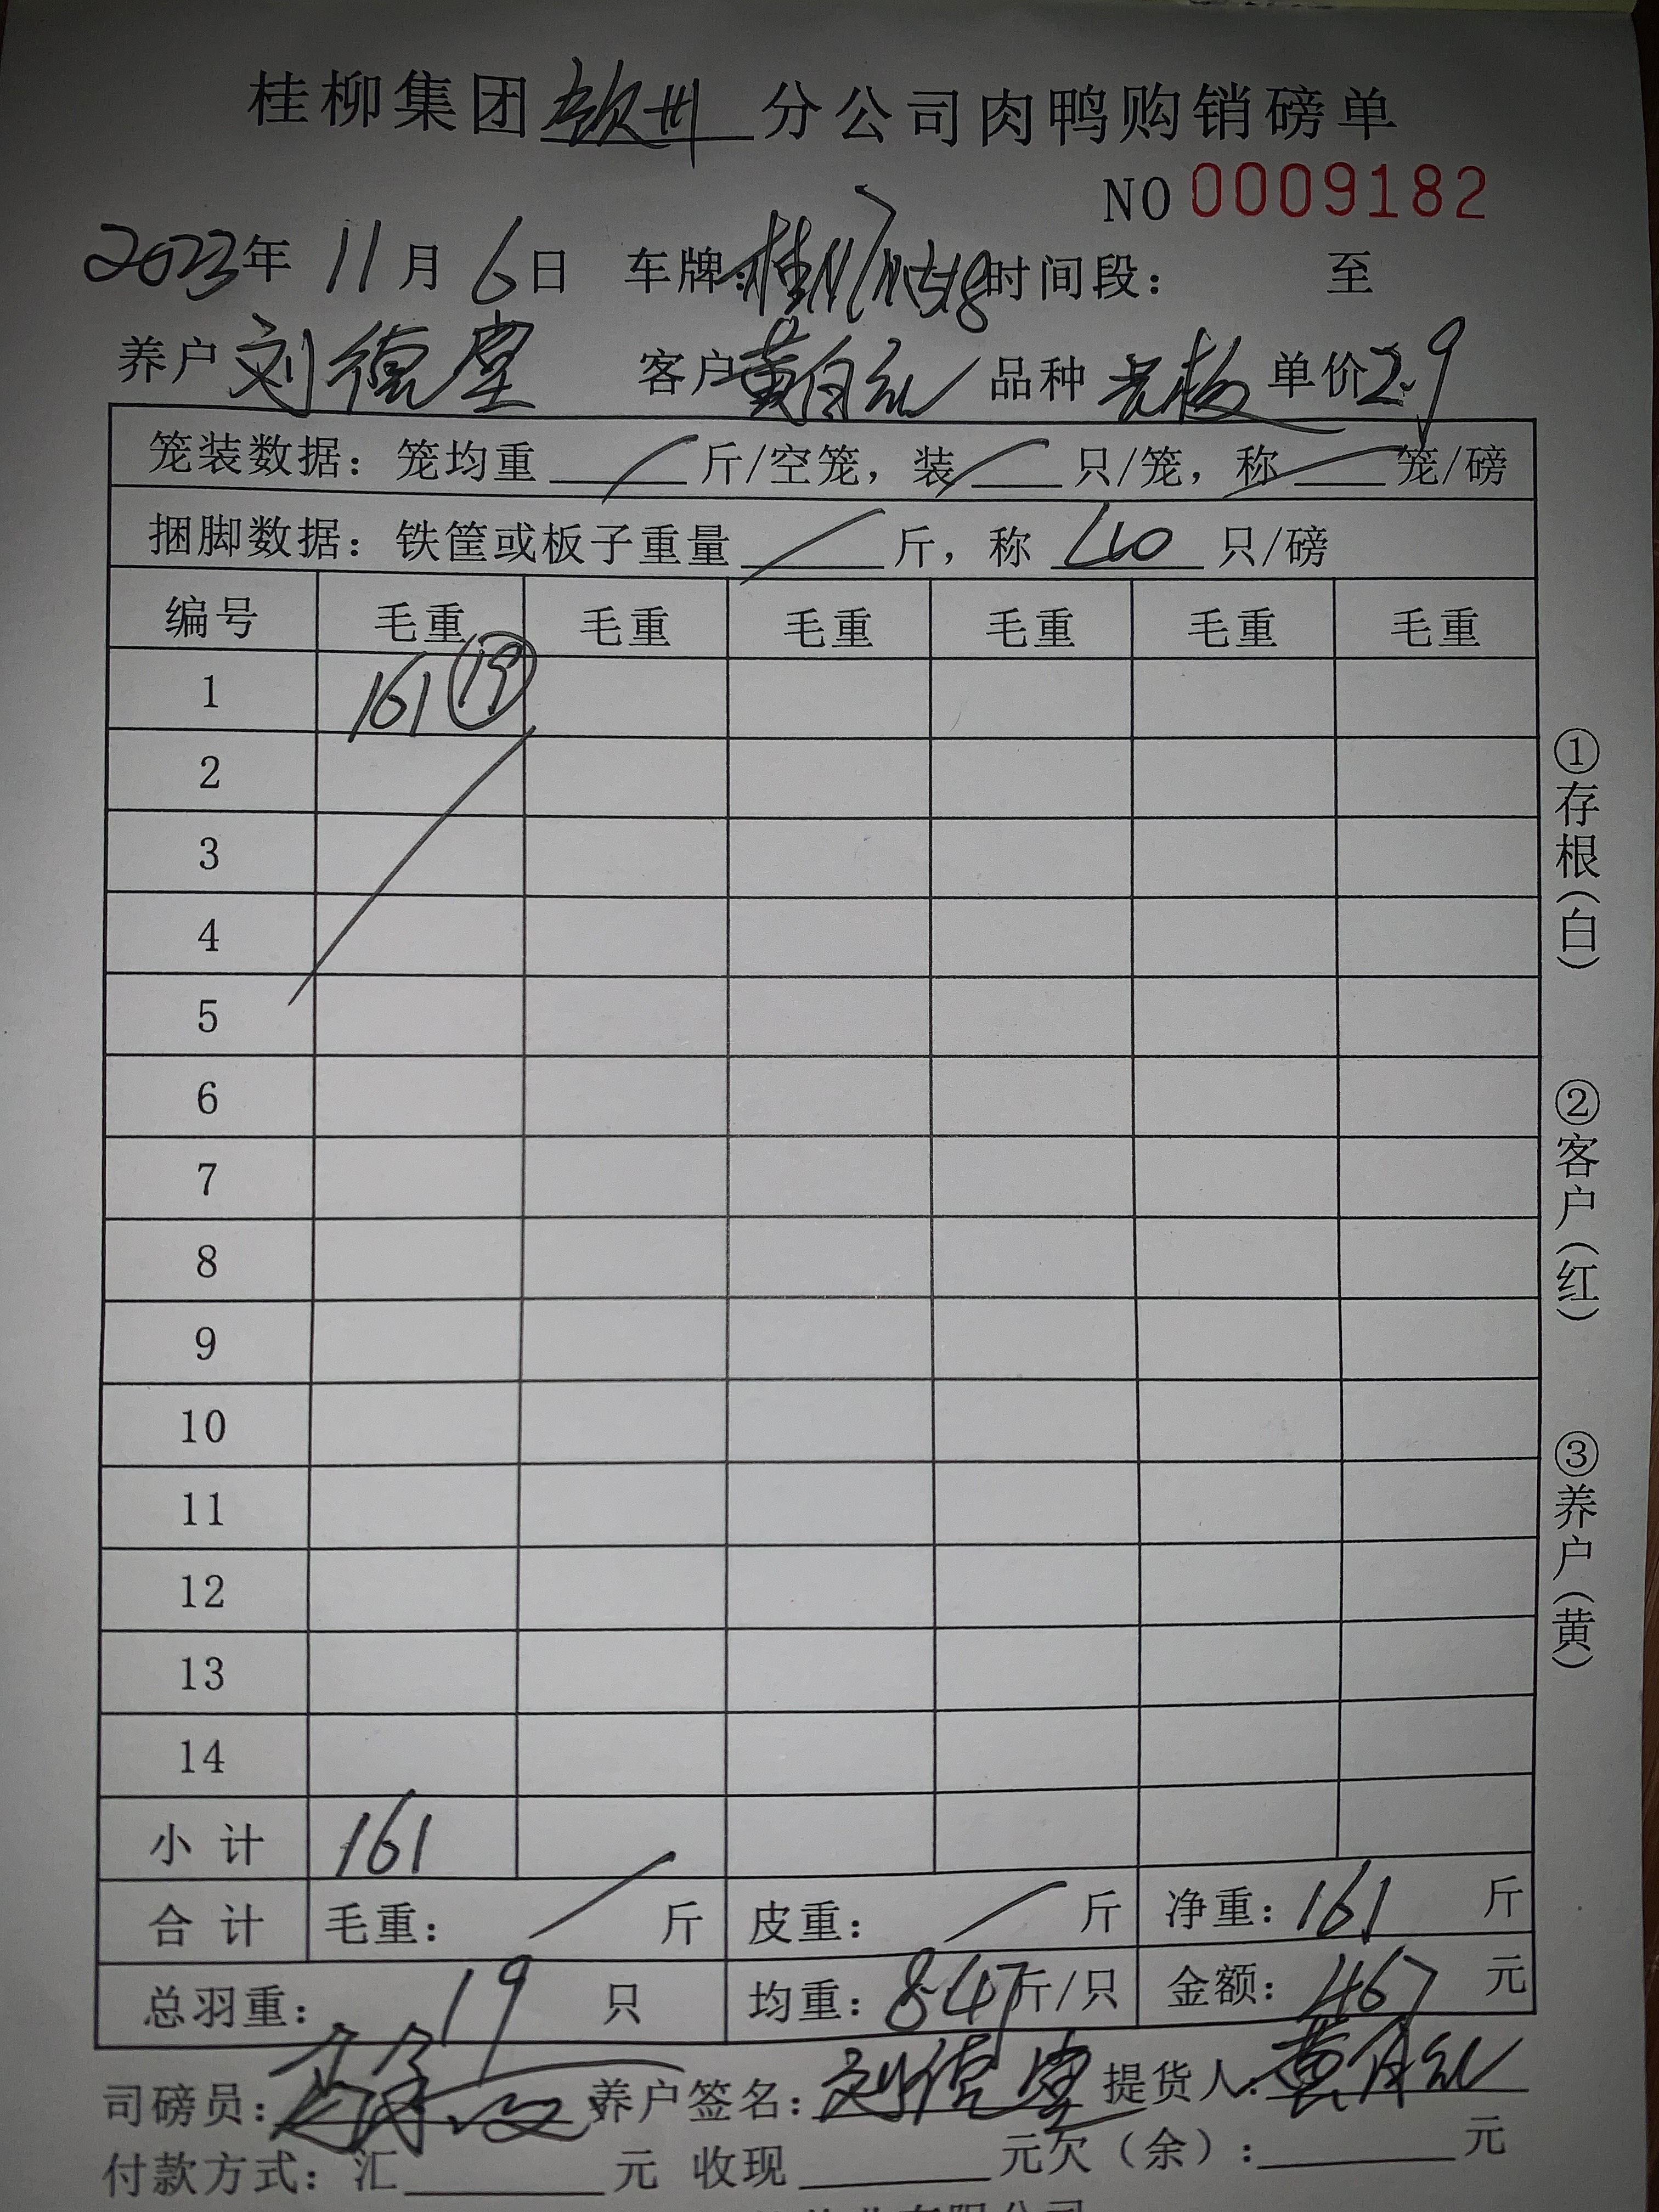 桂柳集团钦州分公司肉鸭购销磅单
NO 0009182
2023年 11月 6日 车牌: 时间段: 至
养户 刘德堂 客户 黄自礼 品种 单价2.9
笼装数据: 笼均重 斤/空笼, 装 只/笼, 称 笼/磅
捆脚数据: 铁筐或板子重量 斤, 称 只/磅
编号 毛重 毛重 毛重 毛重 毛重 毛重
1 161 ⑲
2
3
4
5
6
7
8
9
10
11
12
13
14
小计 161
合计 毛重: 斤 皮重: 斤 净重: 161 斤
总羽重: 19 只 均重: 8.47斤/只 金额: 467 元
司磅员: 养户签名: 刘德堂 提货人: 黄自礼
付款方式: 汇 元 收现 元欠(余): 元
①存根(白)
②客户(红)
③养户(黄)